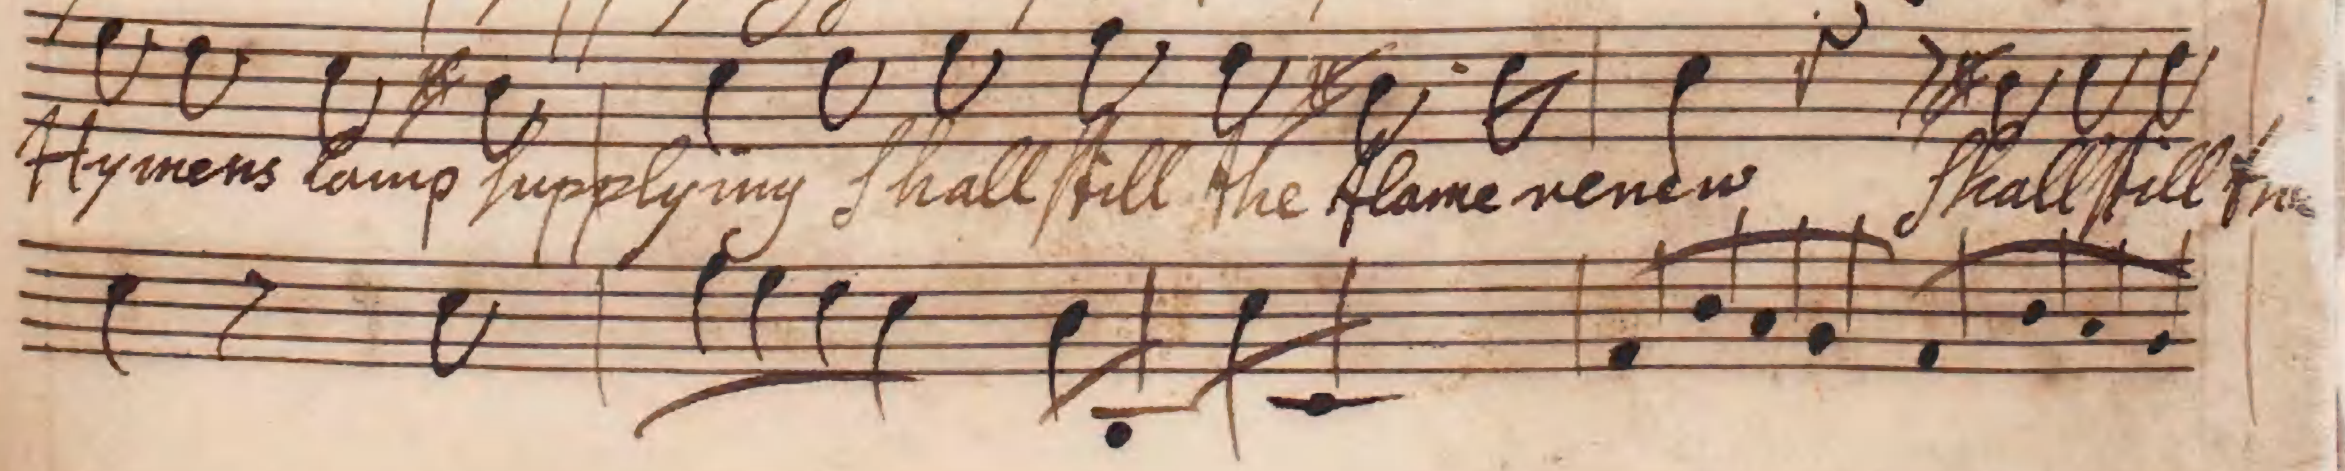 Hymens lamp supplying shall still the flame renew shall still the